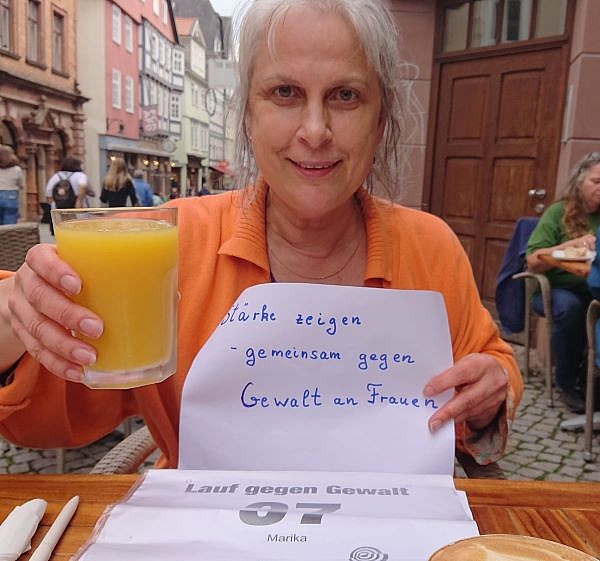 Stärke zeigen
- gemeinsam gegen
Gewalt an Frauen
Lauf gegen Gewalt
07
Marika